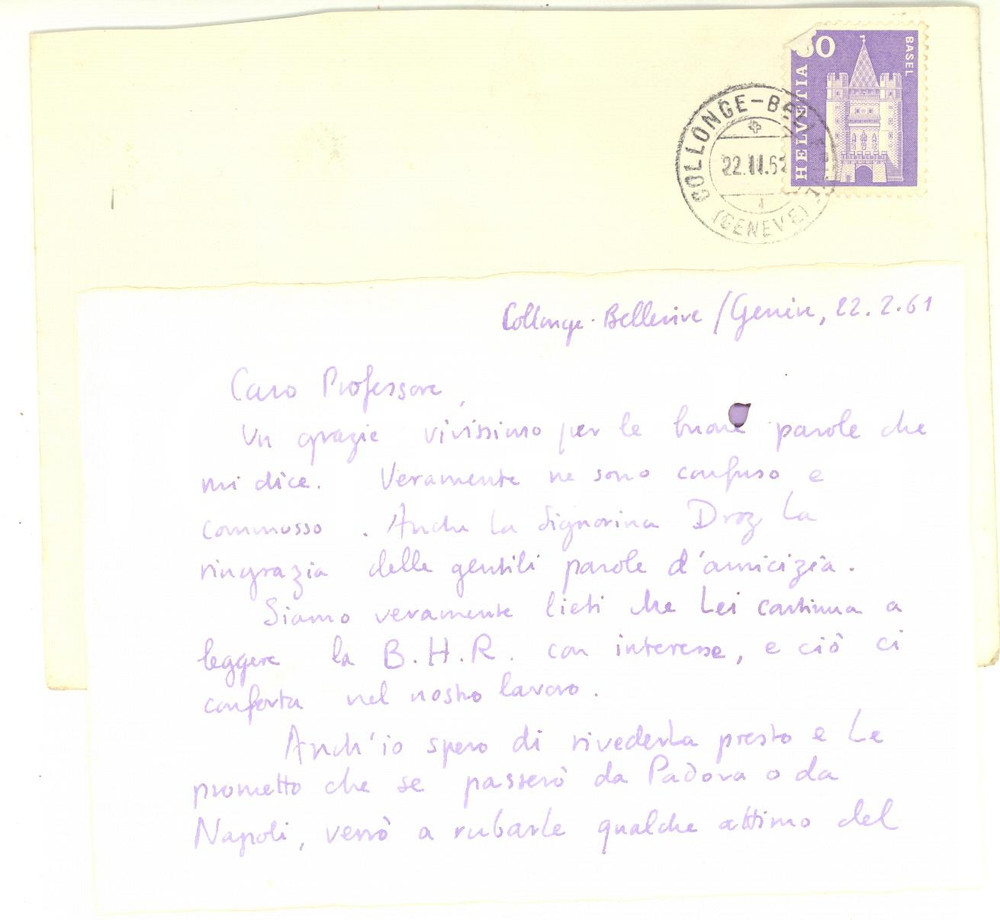 50
BASEL
HELVETIA
COLLONGE-BELLERIVE
22.II.61
(GENEVE)
Collonge-Bellerive / Genève, 22.2.61
Caro Professore,
Un grazie vivissimo per le buone parole che
mi dice. Veramente ne sono confuso e
commosso. Anche la Signorina Droz La
ringrazia delle gentili parole d'amicizia.
Siamo veramente lieti che Lei continua a
leggere la B.H.R. con interesse, e ciò ci
conforta nel nostro lavoro.
Anch'io spero di rivederLa presto e Le
prometto che se passerò da Padova o da
Napoli, verrò a rubarle qualche attimo del